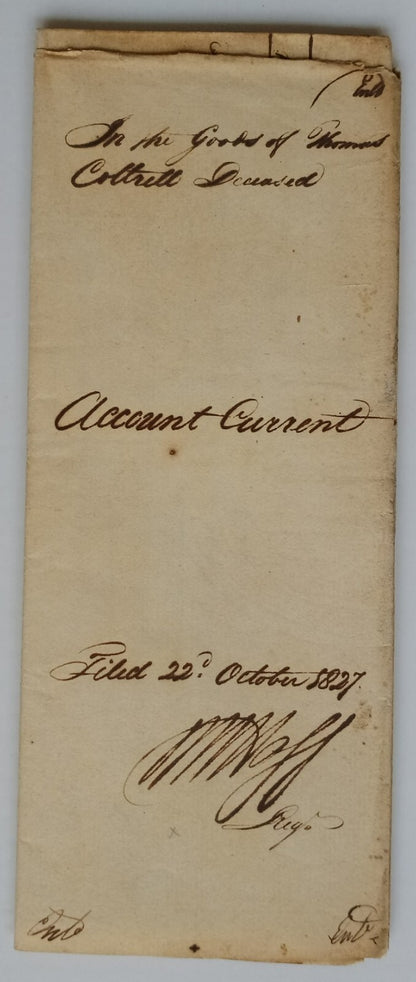 Entd
In the Goods of Thomas
Cottrell Deceased
Account Current
Filed 22d. October 1827.
Regr.
Entd
Entd